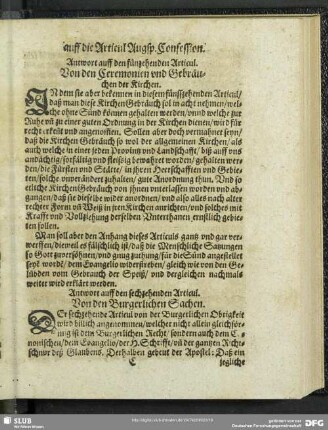 auff die Articul Augsp. Confession.
Antwort auff den fünzehenden Articul.
Von den Ceremonien vnd Gebräu-
chen der Kirchen.
IN dem sie aber bekennen in diesem fünffzehenden Articul/
daß man diese Kirchen Gebräuch sol in acht nehmen/wel-
che ohne Sünd können gehalten werden/vnnd welche zur
Ruhe vñ zu einer guten Ordnung in der Kirchen dienen/wird für
recht erkeñt vnd angenommen. Sollen aber doch vermahnet seyn/
daß die Kirchen Gebräuch so wol der allgemeinen Kirchen/als
auch welche in einer jeden Provintz vnd Landschafft/ biß auff vns
andächtig/sorfältig vnd fleissig bewahret worden/gehalten wer-
den/die Fürsten vnd Stätte/ in jhren Herrschafften vnd Gebie-
ten/solche vnverändert zuhalten/gute Anordnung thun. Vnd so
etliche Kirchen Gebräuch von jhnen vnterlassen worden vnd ab-
gangen/daß sie dieselbe wider anordnen/vnd also alles nach alter
rechter Form vñ Weiß in jren Kirchen anrichten/vnd solches mit
Krafft vnd Vollziehung derselben Vnterthanen ernstlich gebie-
ten sollen.
Man soll aber den Anhang dieses Articuls gantz vnd gar ver-
werffen/dieweil es fälschlich ist/daß die Menschliche Satzungen
so Gott zuversöhnen/vnd gnug zuthun/für die Sünd angestellet
seyn worden/dem Evangelio widerstreben/gleich wie von den Ge-
lübden vom Gebrauch der Speiß/ vnd dergleichen nachmals
weiter wird erklärt werden.
Antwort auff den sechzehenden Articul.
Von den Burgerlichen Sachen.
DEr sechzehende Articul von der Burgerlichen Obrigkeit
wird billich angenommen/welcher nicht allein gleichför-
mig ist dem Burgerlichen Recht/ sondern auch dem Ca-
nonischen/dem Evangelio/der H. Schrifft/vñ der gantzen Richt-
schnur deß Glaubens. Derhalben gebeut der Apostel: Daß ein
C jegliche
SLUB
Wir führen Wissen.
http://digital.slub-dresden.de/
gefördert von der
Deutschen Forschungsgemeinschaft
DFG